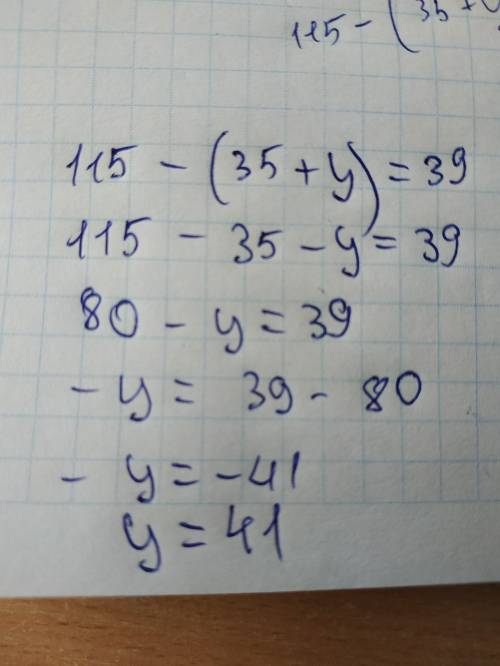 115 - (35 +
115 - (35 + y) = 39
115 - 35 - y = 39
80 - y = 39
- y = 39 - 80
- y = -41
y = 41